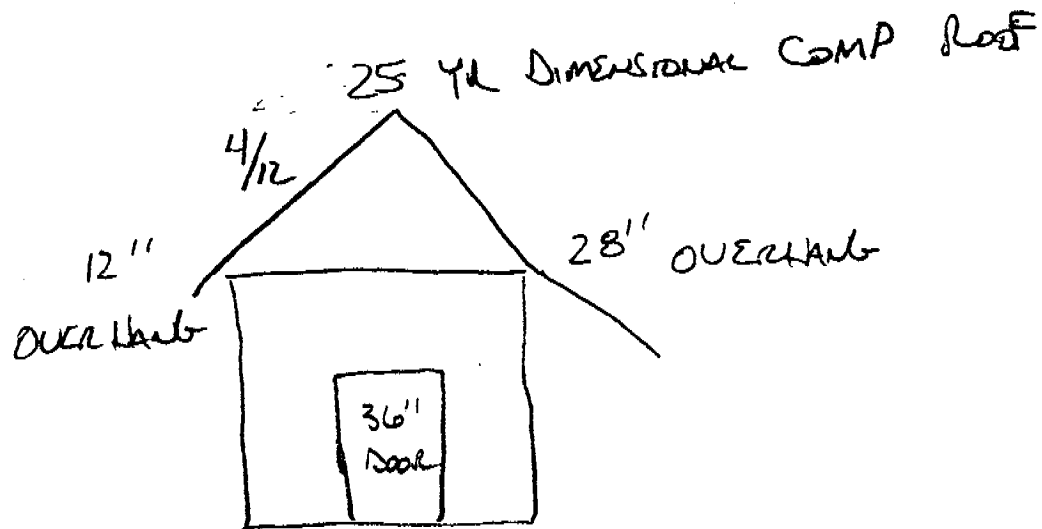 25 YR DIMENSIONAL COMP ROOF
4/12
12"
OVERHANG
28" OVERHANG
36"
DOOR